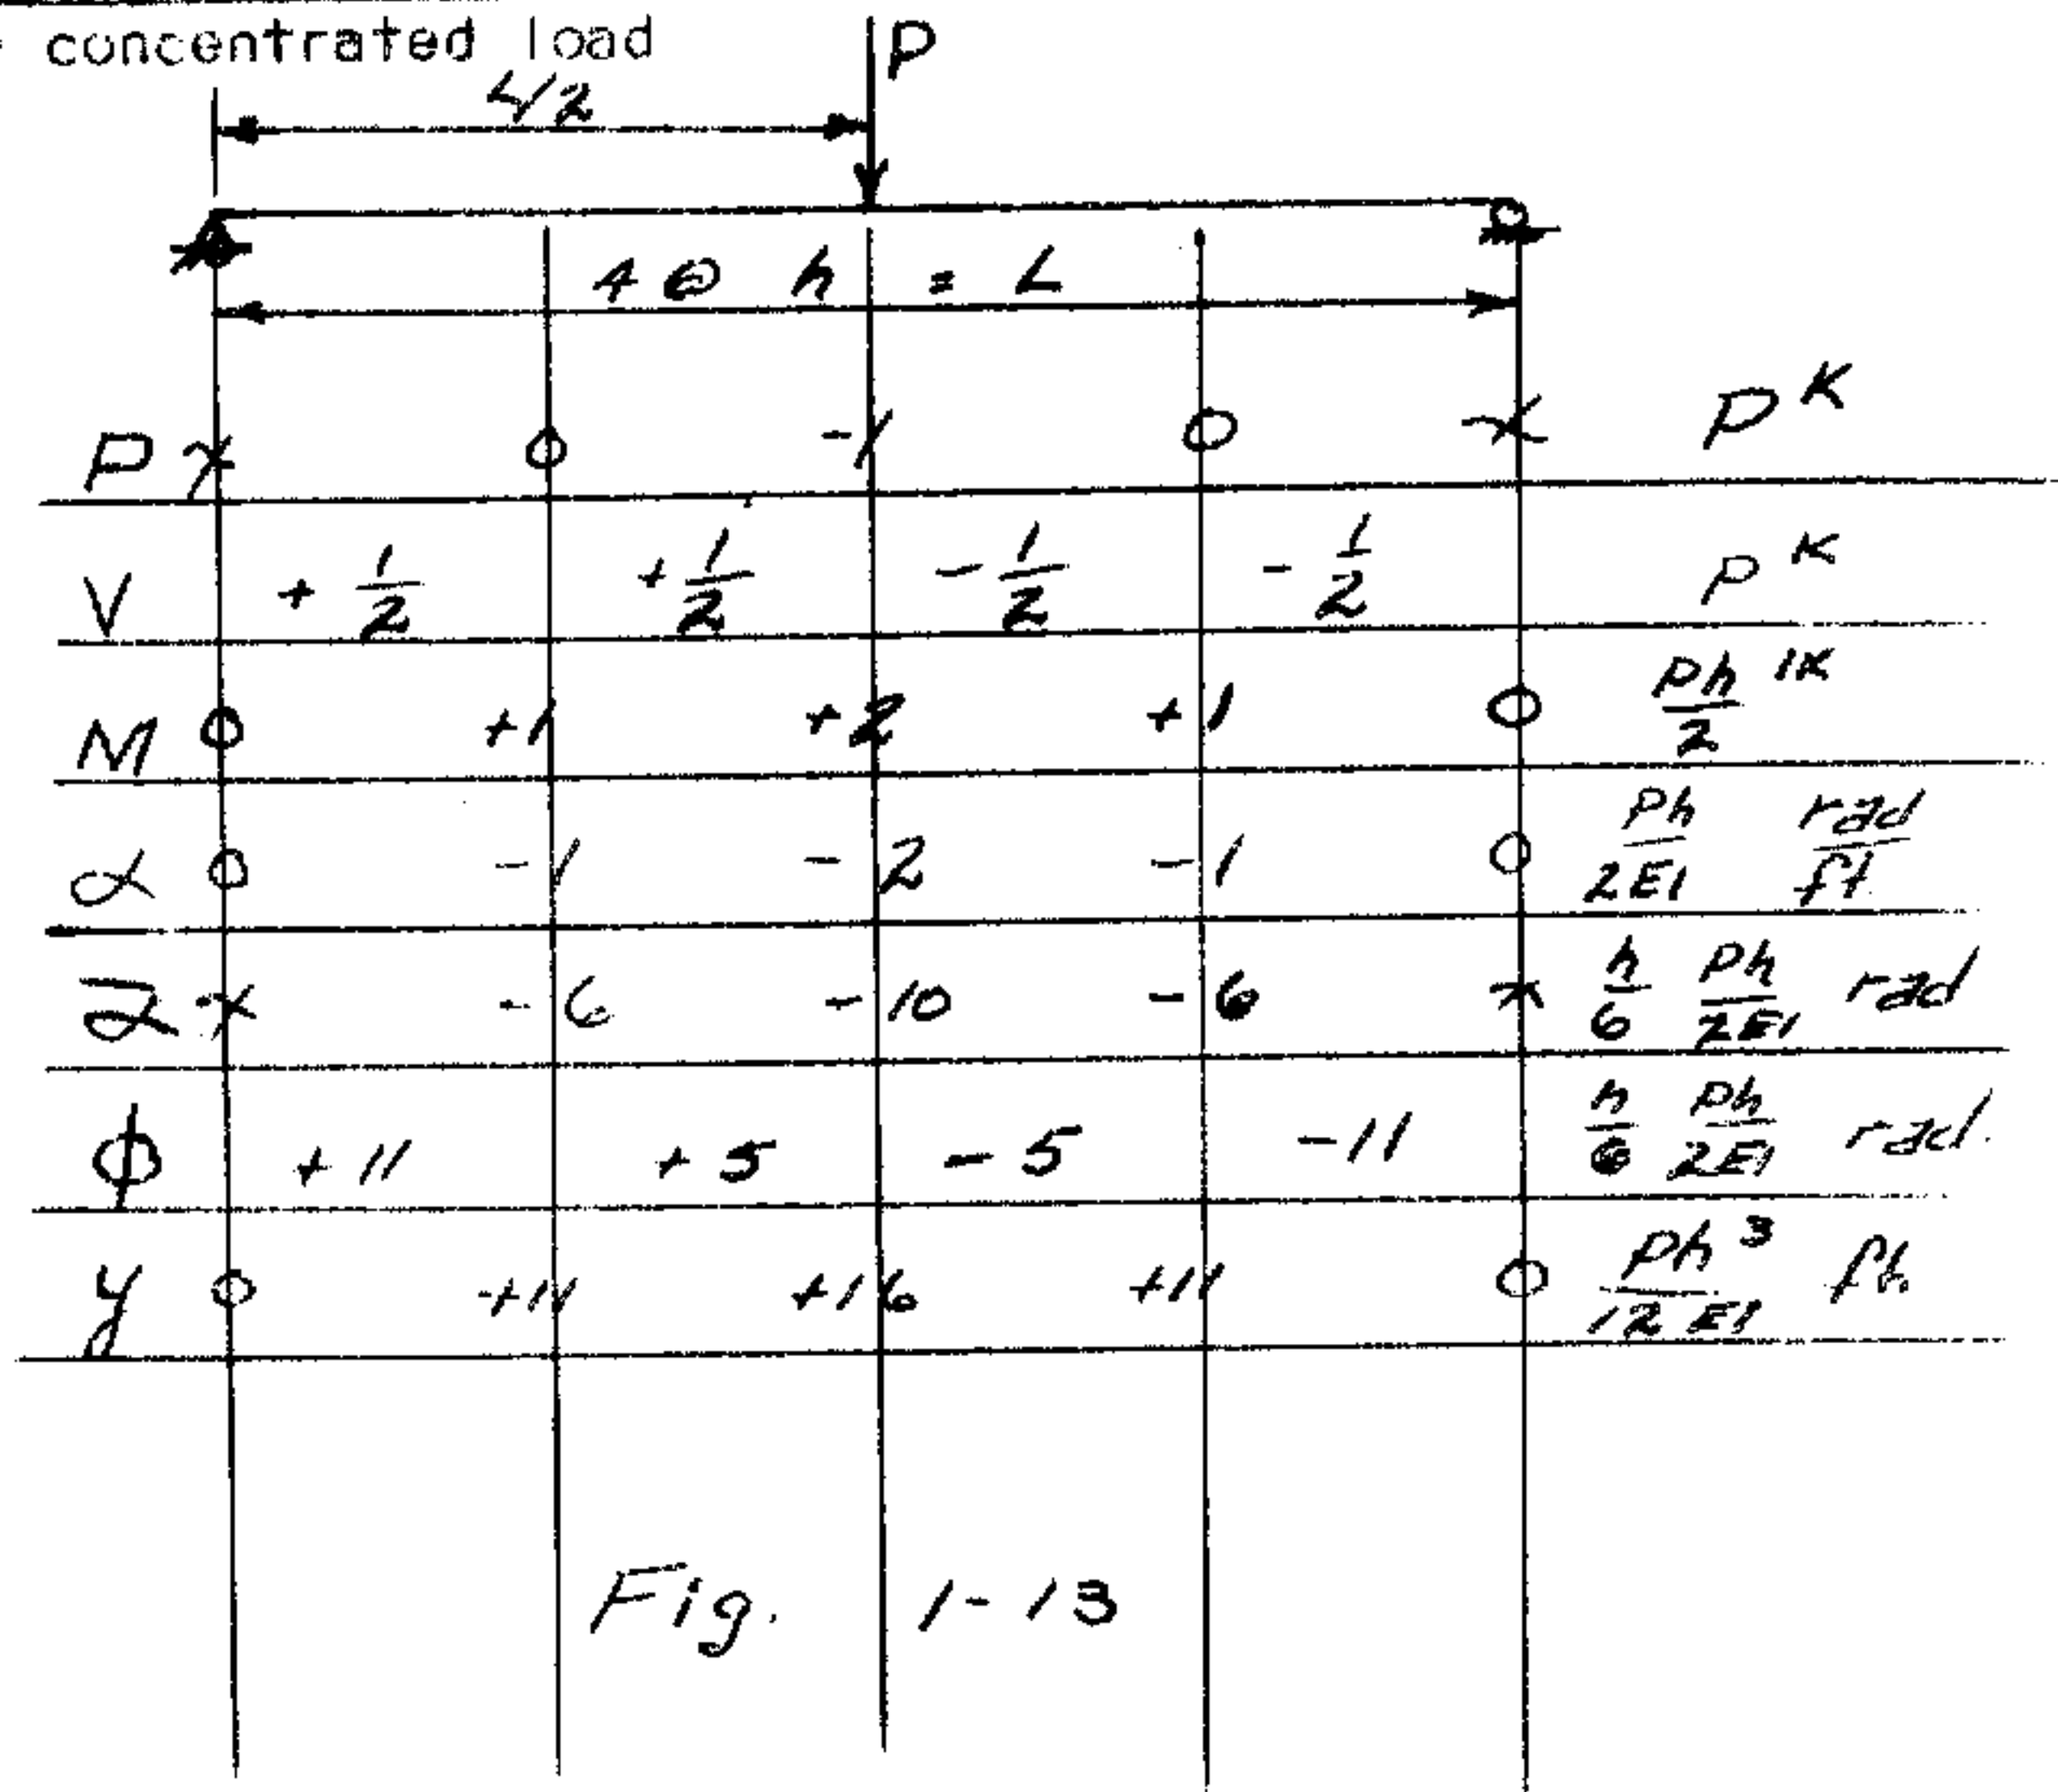 concentrated load
P
L/2
4 @ h = L
P x 0 -1 0 x P^K
V + 1/2 + 1/2 - 1/2 - 1/2 P^K
M 0 +1 +2 +1 0 Ph/2 'K
α 0 -1 -2 -1 0 Ph/2EI rad/ft.
ᾱ x -6 -10 -6 x h/6 Ph/2EI rad
ϕ +11 +5 -5 -11 h/6 Ph/2EI rad.
y 0 +11 +16 +11 0 Ph³/12EI ft
Fig. 1-13